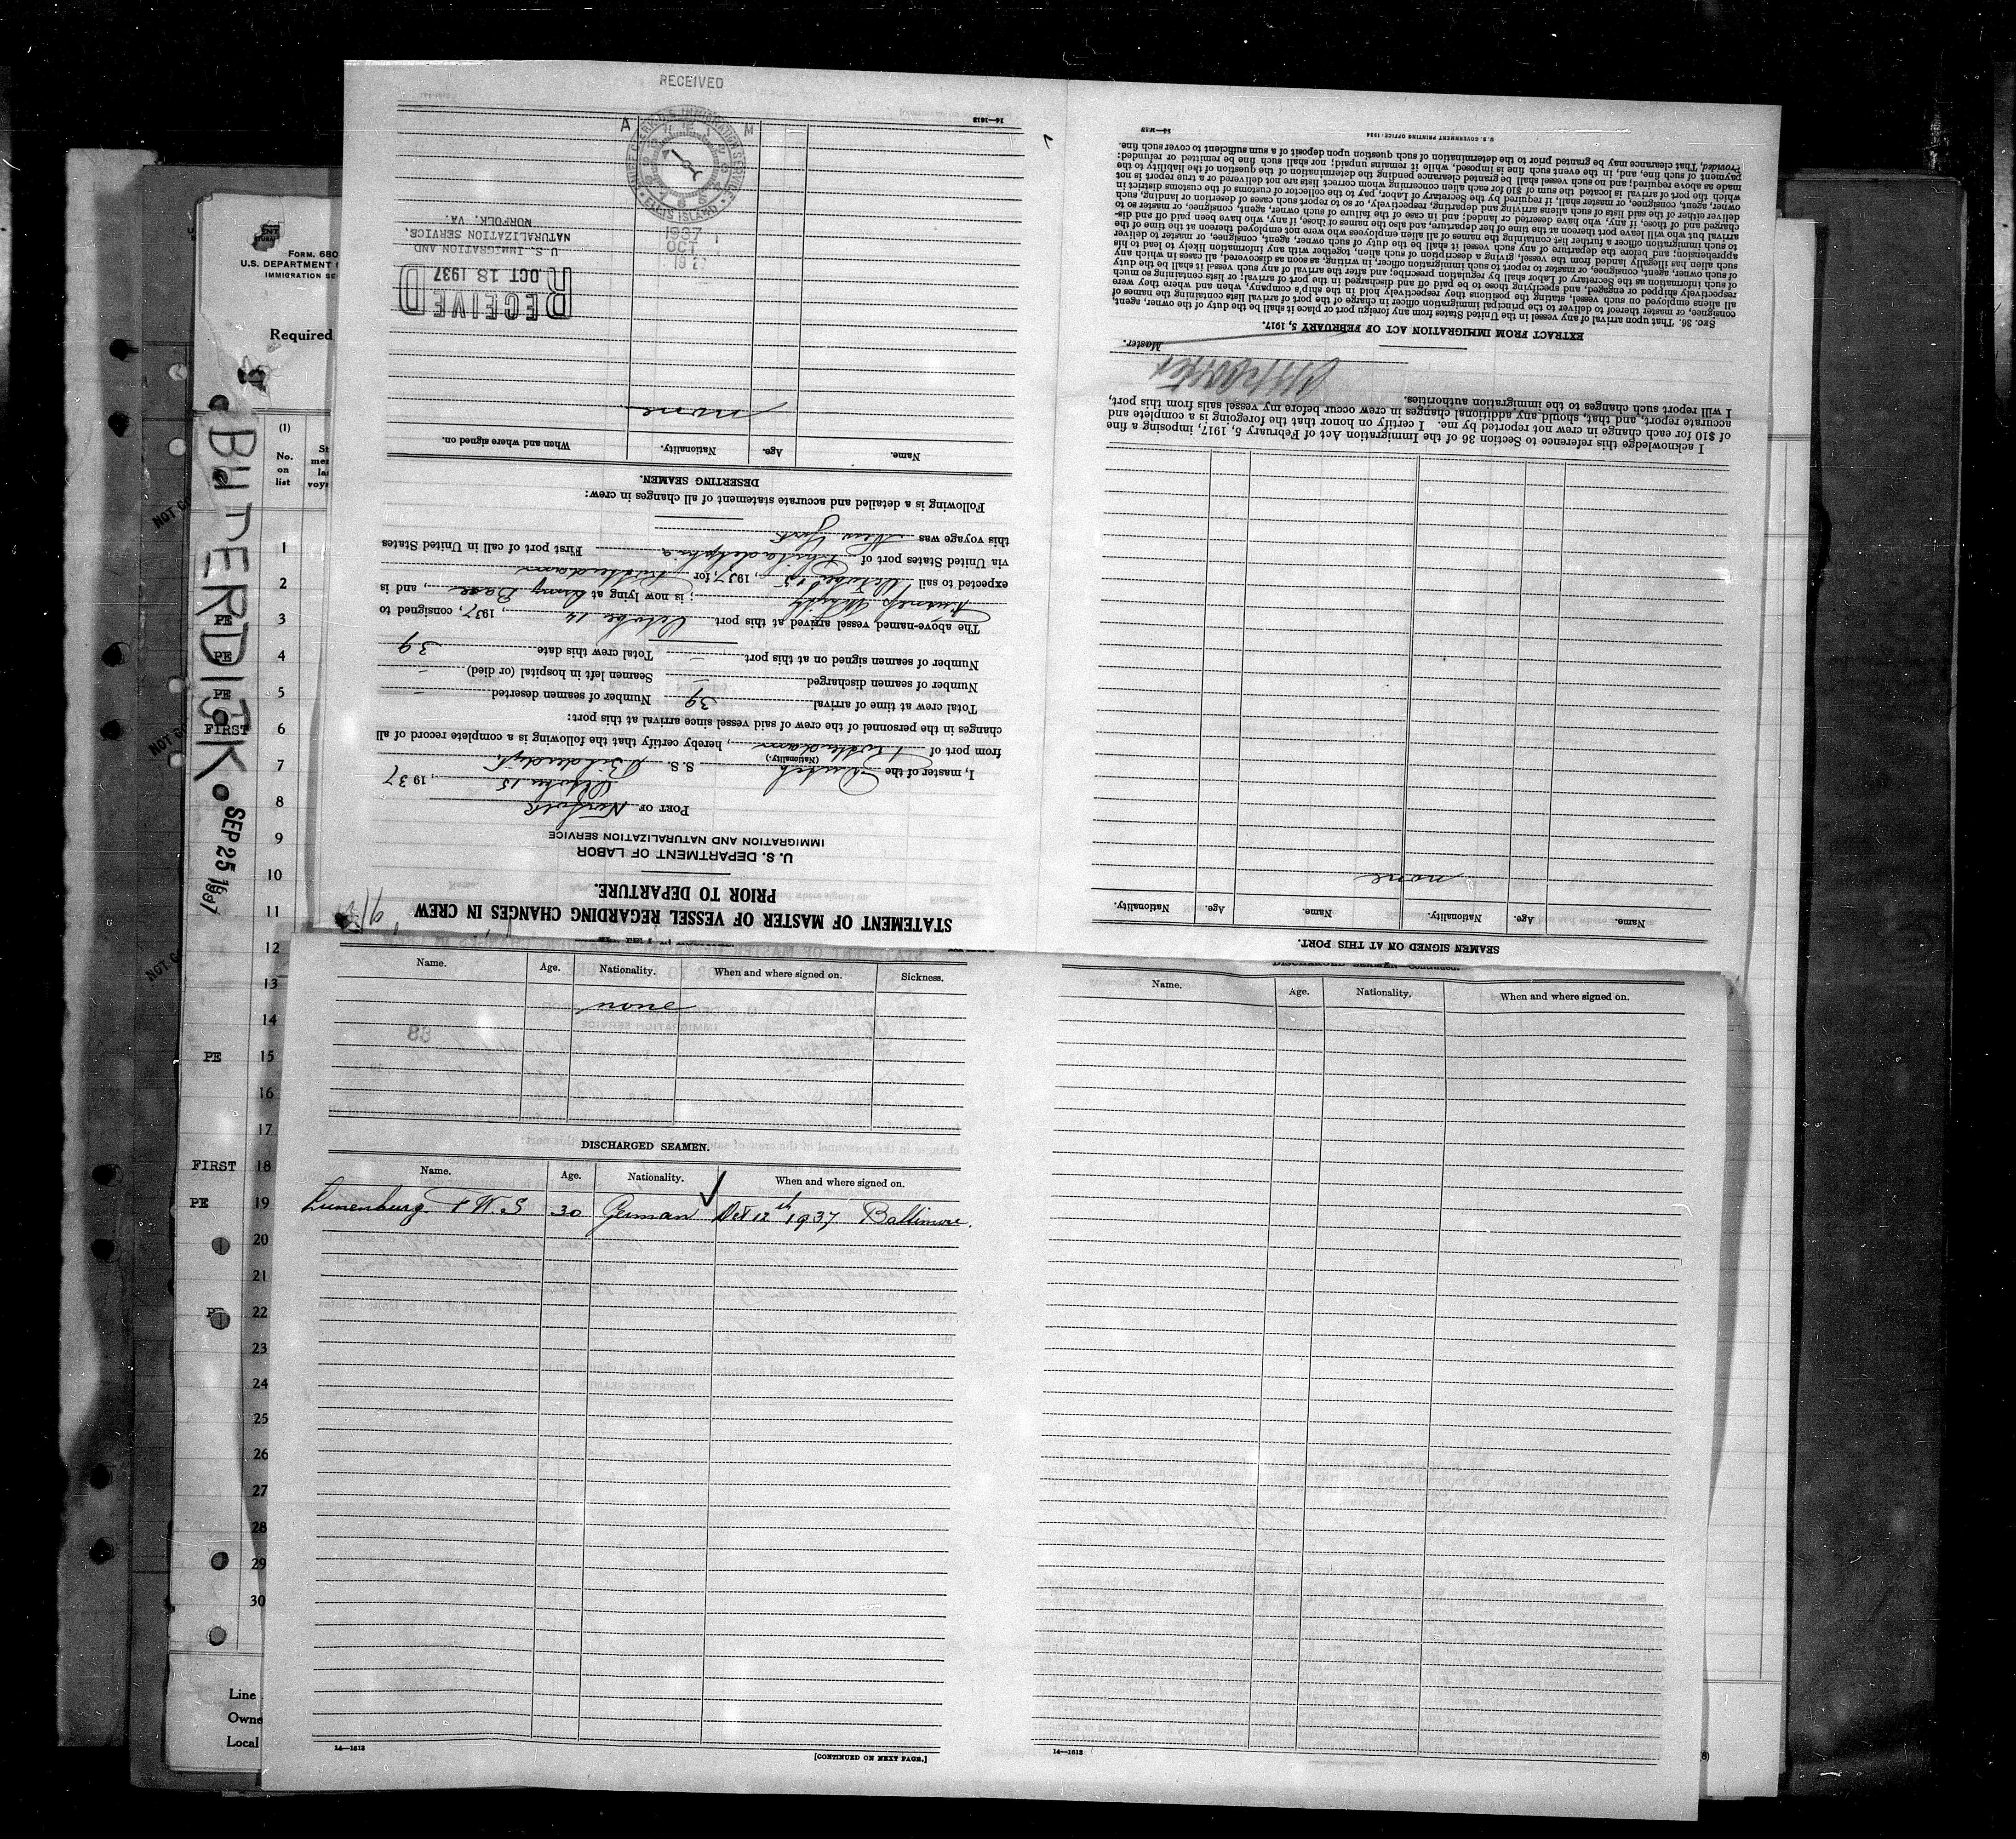 FORM 680
U.S. DEPARTMENT
IMMIGRATION SE
Required
(1)
No. on list
BILDERDIJK
SEP 25 1937
NOT
NOT
NOT
1
2
PE 3
PE 4
PE 5
FIRST 6
7
8
9
10
11
12
13
14
PE 15
16
17
FIRST 18
PE 19
20
21
22
23
24
25
26
27
28
29
30
Line
Owne
Local
STATEMENT OF MASTER OF VESSEL REGARDING CHANGES IN CREW
PRIOR TO DEPARTURE.
U. S. DEPARTMENT OF LABOR
IMMIGRATION AND NATURALIZATION SERVICE
PORT OF Norfolk
October 15, 1937
I, master of the Dutch S. S. Bilderdijk
(Nationality)
from port of Rotterdam, hereby certify that the following is a complete record of all
changes in the personnel of the crew of said vessel since arrival at this port:
Total crew at time of arrival 39 Number of seamen deserted –
Number of seamen discharged – Seamen left in hospital (or died) –
Number of seamen signed on at this port – Total crew this date 39
The above-named vessel arrived at this port October 14, 1937, consigned to
Furness Withy; is now lying at Army Base, and is
expected to sail October 15, 1937, for Rotterdam
via United States port of Philadelphia First port of call in United States
this voyage was New York
Following is a detailed and accurate statement of all changes in crew:
DESERTING SEAMEN.
Name. Age. Nationality. When and where signed on.
none
RECEIVED
OCT 18 1937
U. S. IMMIGRATION AND
NATURALIZATION SERVICE,
NORFOLK, VA.
A M
U.S. IMMIGRATION SERVICE
ELLIS ISLAND
1937
OCT
RECEIVED
14—1613
SEAMEN SIGNED ON AT THIS PORT.
Name. Age. Nationality. Name. Age. Nationality.
none
I acknowledge this reference to Section 36 of the Immigration Act of February 5, 1917, imposing a fine
of $10 for each change in crew not reported by me. I certify on honor that the foregoing is a complete and
accurate report, and that, should any additional changes in crew occur before my vessel sails from this port,
I will report such changes to the immigration authorities.
Master.
EXTRACT FROM IMMIGRATION ACT OF FEBRUARY 5, 1917.
SEC. 36. That upon arrival of any vessel in the United States from any foreign port or place it shall be the duty of the owner, agent,
consignee, or master thereof to deliver to the principal immigration officer in charge of the port of arrival lists containing the names of
all aliens employed on such vessel, stating the positions they respectively hold in the ship's company, when and where they were
respectively shipped or engaged, and specifying those to be paid off and discharged in the port of arrival; or lists containing so much
of such information as the Secretary of Labor shall by regulation prescribe; and after the arrival of any such vessel it shall be the duty
of such owner, agent, consignee, or master to report to such immigration officer, in writing, as soon as discovered, all cases in which any
such alien has illegally landed from the vessel, giving a description of such alien, together with any information likely to lead to his
apprehension; and before the departure of any such vessel it shall be the duty of such owner, agent, consignee, or master to deliver
to such immigration officer a further list containing the names of all alien employees who were not employed thereon at the time of the
arrival but who will leave port thereon at the time of her departure, and also the names of those, if any, who have been paid off and dis-
charged and of those, if any, who have deserted or landed; and in case of the failure of such owner, agent, consignee, or master so to
deliver either of the said lists of such aliens arriving and departing, respectively, or so to report such cases of desertion or landing, such
owner, agent, consignee, or master, shall, if required by the Secretary of Labor, pay to the collector of customs of the customs district in
which the port of arrival is located the sum of $10 for each alien concerning whom correct lists are not delivered or a true report is not
made as above required; and no such vessel shall be granted clearance pending the determination of the question of the liability to the
payment of such fine, and, in the event such fine is imposed, while it remains unpaid; nor shall such fine be remitted or refunded:
Provided, That clearance may be granted prior to the determination of such question upon deposit of a sum sufficient to cover such fine.
U. S. GOVERNMENT PRINTING OFFICE: 1934
Name. Age. Nationality. When and where signed on. Sickness.
none
DISCHARGED SEAMEN.
Name. Age. Nationality. When and where signed on.
Lunenburg. F W. S 30 German Oct 12th 1937 Baltimore.
14—1613
[CONTINUED ON NEXT PAGE.]
DISCHARGED SEAMEN—Continued.
Name. Age. Nationality. When and where signed on.
14—1613